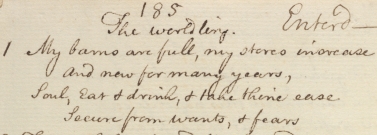 185
The worldling. Enterd —
1 My barns are full, my stores increase
And now for many years,
Soul, Eat & drink, & take thine ease
Secure from wants, & fears